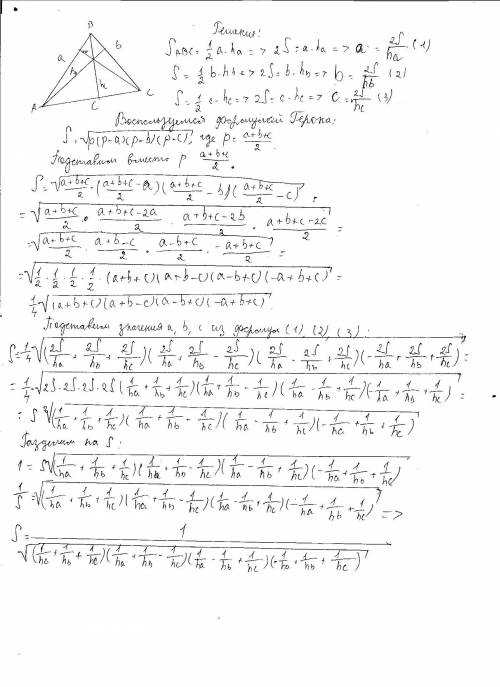 Решение:
S ABC = 1/2 a·ha => 2S = a·ha => a = 2S/ha (1)
S = 1/2 b·hb => 2S = b·hb => b = 2S/hb (2)
S = 1/2 c·hc => 2S = c·hc => c = 2S/hc (3)
B
a b
h
A C C
Воспользуемся формулой Герона:
S = √(p(p-a)(p-b)(p-c)), где p = (a+b+c)/2
Подставим вместо p (a+b+c)/2.
S = √((a+b+c)/2 · ((a+b+c)/2 - a)((a+b+c)/2 - b)((a+b+c)/2 - c)) =
= √((a+b+c)/2 · (a+b+c-2a)/2 · (a+b+c-2b)/2 · (a+b+c-2c)/2) =
= √((a+b+c)/2 · (a+b-c)/2 · (a-b+c)/2 · (-a+b+c)/2) =
= √(1/2 · 1/2 · 1/2 · 1/2 · (a+b+c)(a+b-c)(a-b+c)(-a+b+c)) =
1/4 √((a+b+c)(a+b-c)(a-b+c)(-a+b+c))
Подставим значения a, b, c из формул (1), (2), (3):
S = 1/4 √((2S/ha + 2S/hb + 2S/hc)(2S/ha + 2S/hb - 2S/hc)(2S/ha - 2S/hb + 2S/hc)(-2S/ha + 2S/hb + 2S/hc)) =
= 1/4 · √(2S·2S·2S·2S (1/ha + 1/hb + 1/hc)(1/ha + 1/hb - 1/hc)(1/ha - 1/hb + 1/hc)(-1/ha + 1/hb + 1/hc)) =
= S² √((1/ha + 1/hb + 1/hc)(1/ha + 1/hb - 1/hc)(1/ha - 1/hb + 1/hc)(-1/ha + 1/hb + 1/hc))
Разделим на S:
1 = S √((1/ha + 1/hb + 1/hc)(1/ha + 1/hb - 1/hc)(1/ha - 1/hb + 1/hc)(-1/ha + 1/hb + 1/hc))
1/S = √((1/ha + 1/hb + 1/hc)(1/ha + 1/hb - 1/hc)(1/ha - 1/hb + 1/hc)(-1/ha + 1/hb + 1/hc)) =>
S = 1/√((1/ha + 1/hb + 1/hc)(1/ha + 1/hb - 1/hc)(1/ha - 1/hb + 1/hc)(-1/ha + 1/hb + 1/hc))